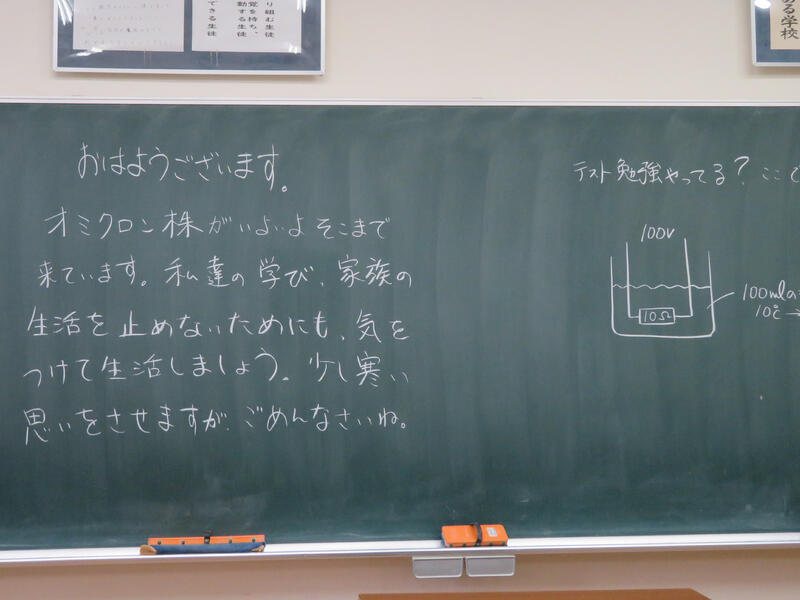 り組む生徒
覚を持ち、
動する生徒
できる生徒
ある学校
おはようございます。
オミクロン株がいよいよそこまで
来ています。私達の学び、家族の
生活を止めないためにも、気を
つけて生活しましょう。少し寒い
思いをさせますが、ごめんなさいね。
テスト勉強やってる？ここで
100V
10Ω
100mlの
10℃→